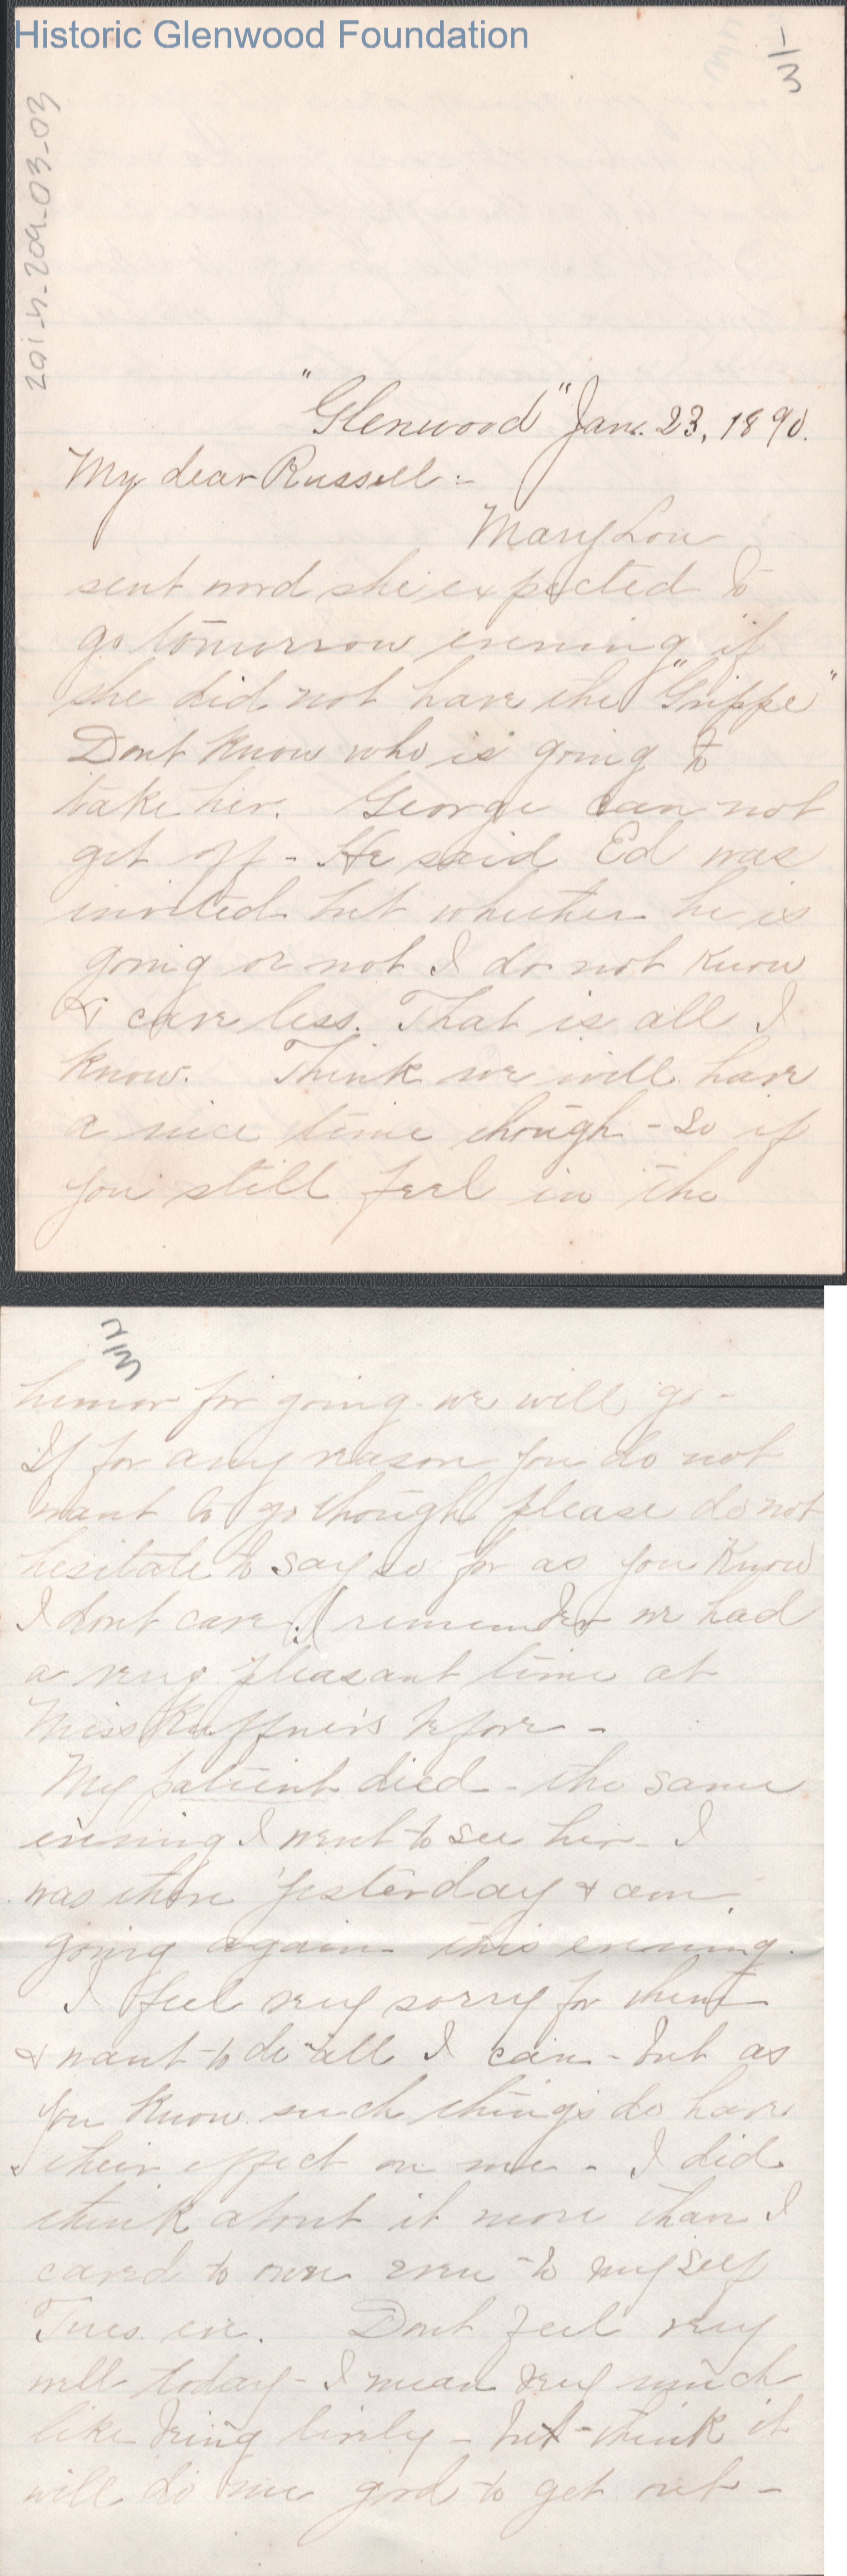 Historic Glenwood Foundation
1/3
2014-209-03-03
"Glenwood" Jan. 23, 1890.
My dear Russell :-
Mary Lou
sent word she expected to
go tomorrow evening if
she did not have the "Grippe"
Dont know who is going to
take her. George can not
get off - He said Ed was
invited but whether he is
going or not I do not know
& care less. That is all I
know. Think we will have
a nice time though - so if
you still feel in the
2/3
humor for going we will go -
If for any reason you do not
want to go though please do not
hesitate to say so for as you know
I dont care. I remember we had
a very pleasant time at
Miss Ruffner's before -
My patient died - the same
evening I went to see her - I
was there yesterday & am
going again this evening.
I feel very sorry for them
& want to do all I can - but as
you know such things do have
their effect on me - I did
think about it more than I
cared to own even to myself
Tues. eve. Dont feel very
well today - I mean very much
like being lively - but think it
will do me good to get out -